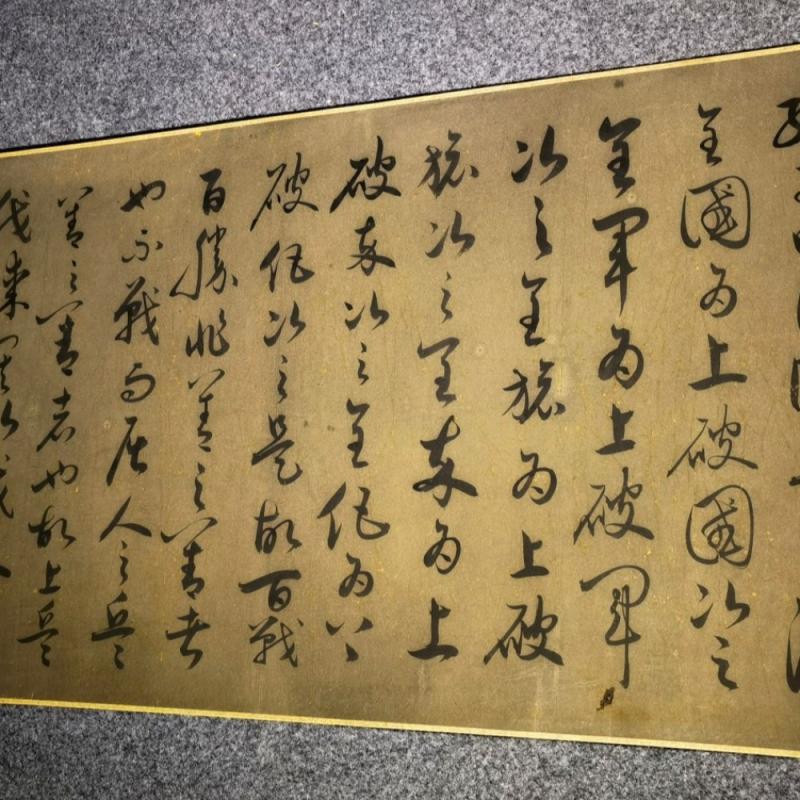 全國為上破國次之
全軍為上破軍
次之全旅為上破
旅次之全卒為上
破卒次之全伍為上
破伍次之是故百戰
百勝非善之善者
也不戰而屈人之兵
善之善者也故上兵
伐謀其次伐